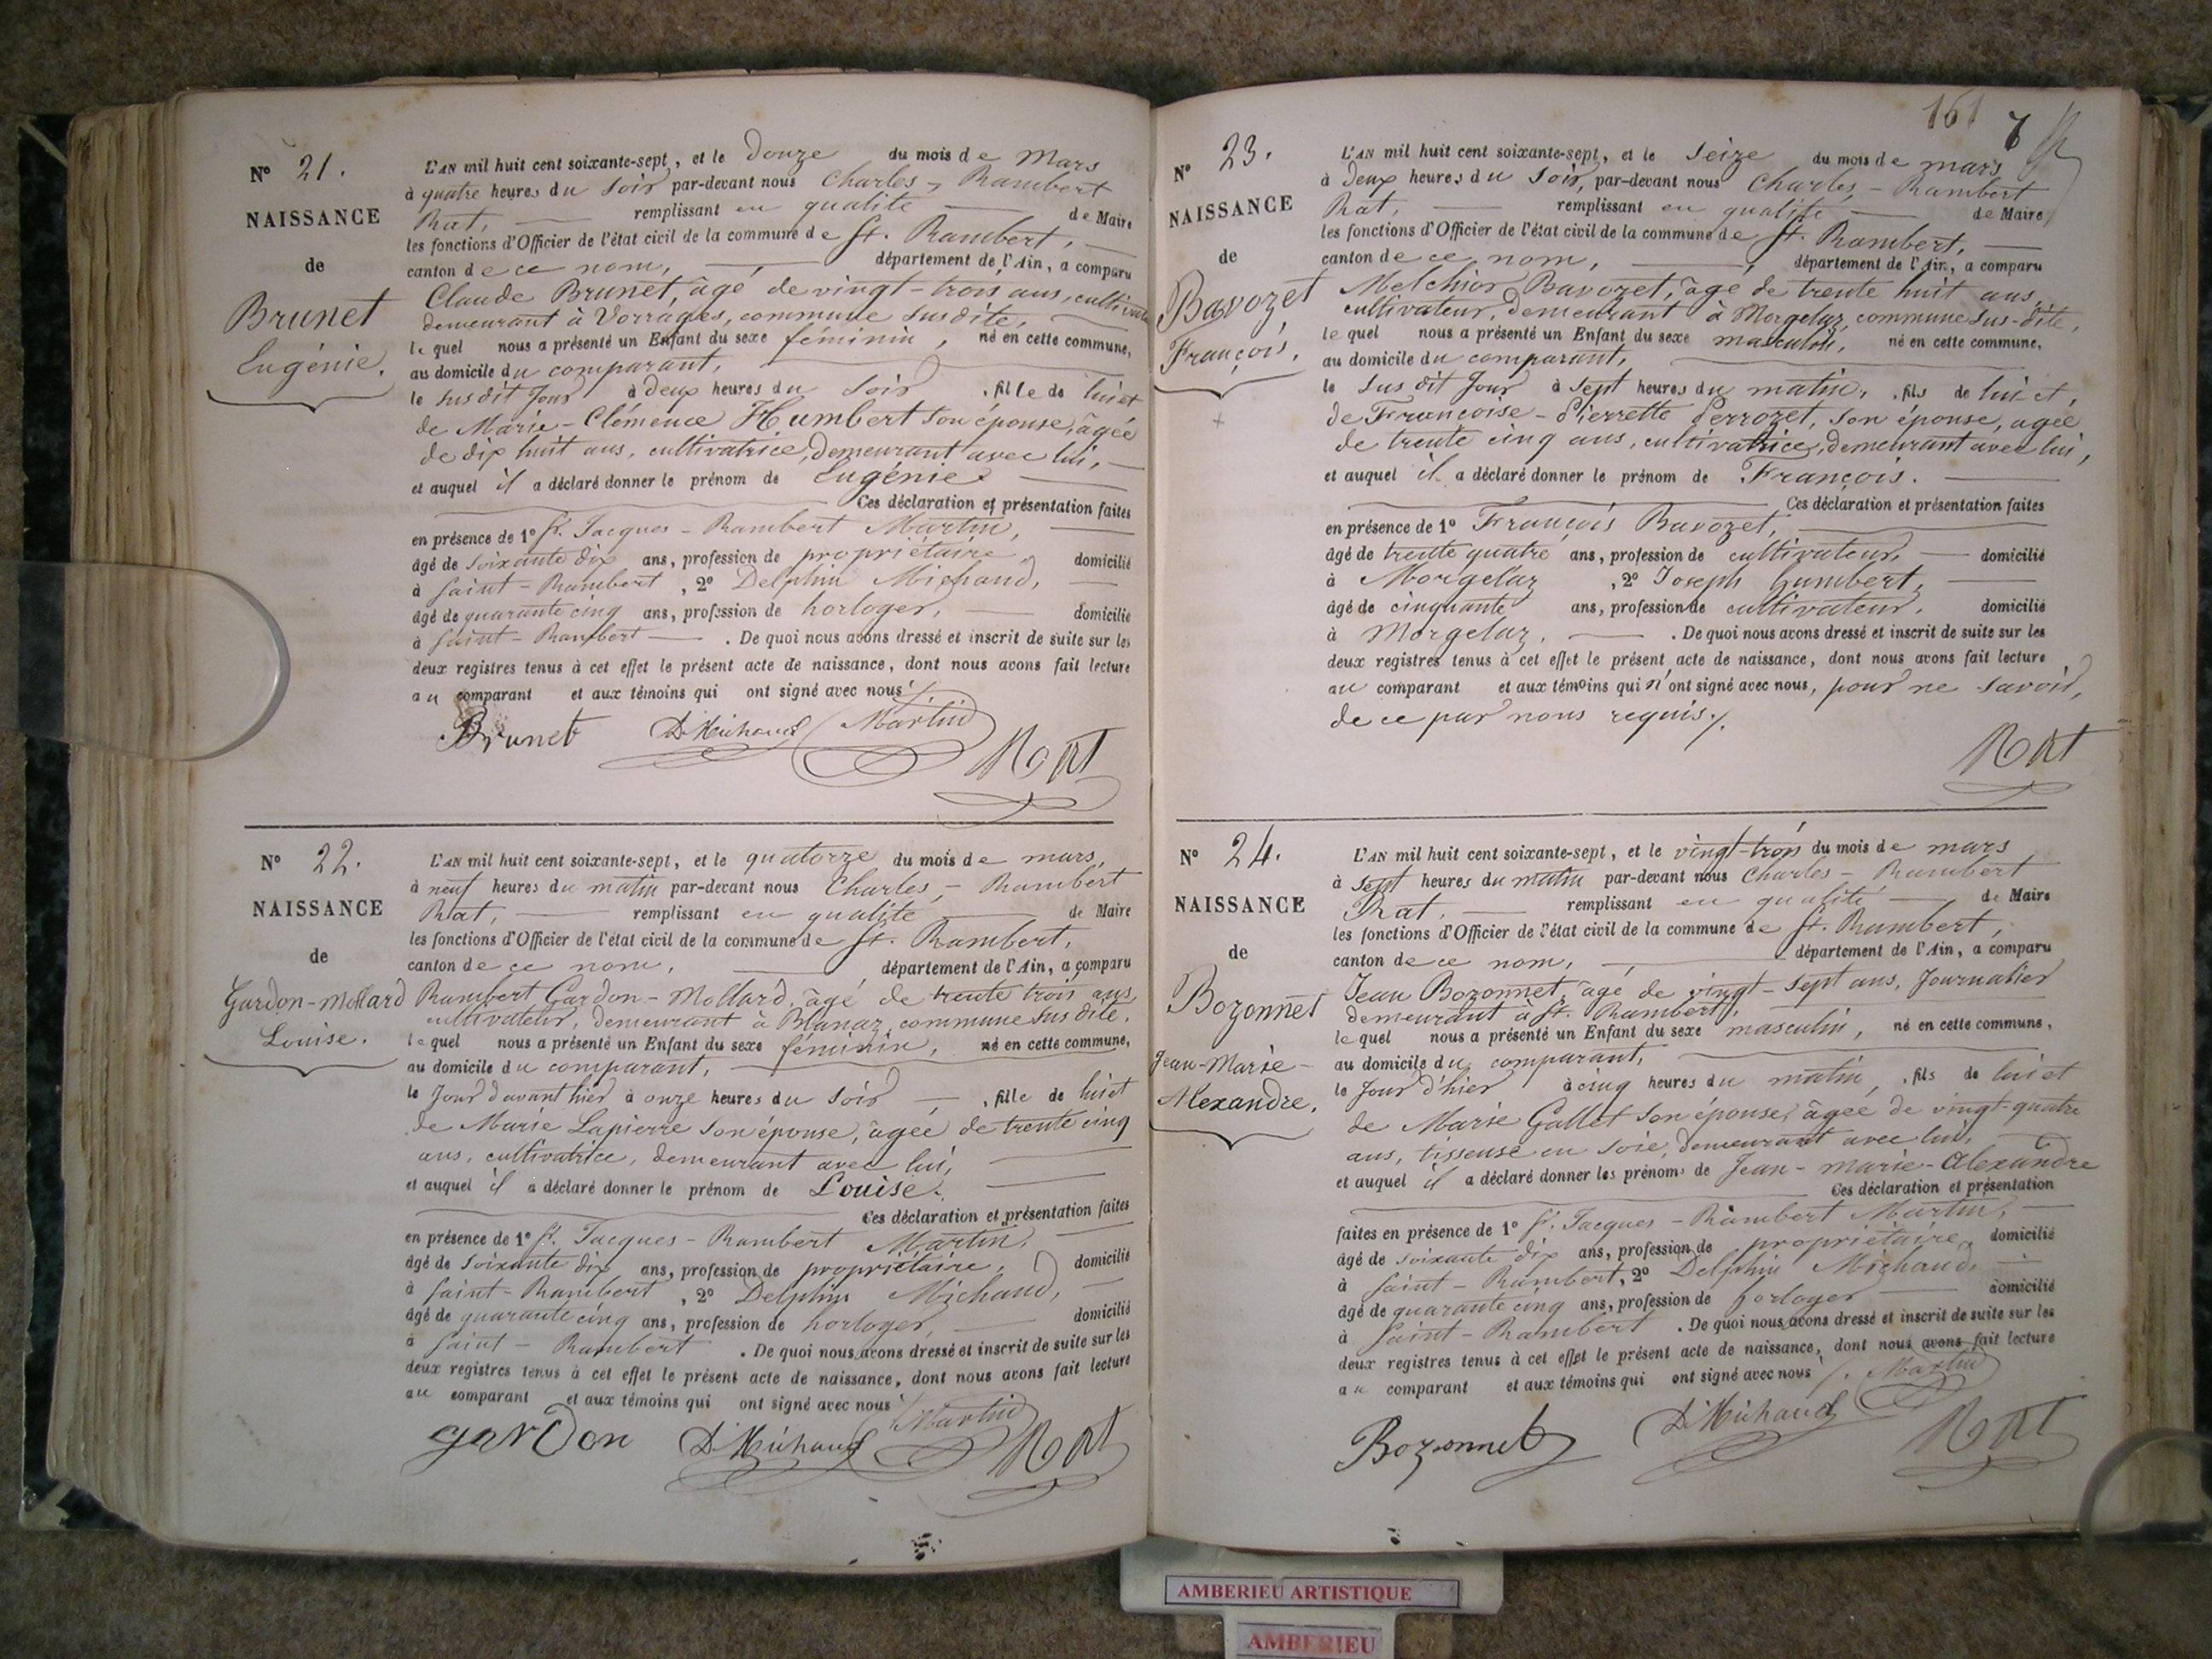 N° 21.
NAISSANCE
de
Brunet
Eugénie.
L'AN mil huit cent soixante-sept, et le douze du mois de Mars
à quatre heures du soir par-devant nous Charles-Rambert
Rat, remplissant en qualité de Maire
les fonctions d'Officier de l'état civil de la commune de St. Rambert,
canton de ce nom, département de l'Ain, a comparu
Claude Brunet, âgé de vingt-trois ans, cultivateur
demeurant à Vorrages, commune susdite,
lequel nous a présenté un Enfant du sexe féminin, né en cette commune,
au domicile du comparant,
le susdit jour à deux heures du soir, fille de lui et
de Marie-Clémence Humbert son épouse, âgée
de dix huit ans, cultivatrice, demeurant avec lui,
et auquel il a déclaré donner le prénom de Eugénie.
Ces déclaration et présentation faites
en présence de 1° Sr. Jacques-Rambert Martin,
âgé de soixante dix ans, profession de propriétaire, domicilié
à Saint-Rambert, 2° Delphin Michaud,
âgé de quarante cinq ans, profession de horloger, domicilié
à Saint-Rambert. De quoi nous avons dressé et inscrit de suite sur les
deux registres tenus à cet effet le présent acte de naissance, dont nous avons fait lecture
au comparant et aux témoins qui ont signé avec nous
Brunet D Michaud Martin Rat
N° 22.
NAISSANCE
de
Gardon-Mollard
Louise.
L'AN mil huit cent soixante-sept, et le quatorze du mois de mars,
à neuf heures du matin par-devant nous Charles-Rambert
Rat, remplissant en qualité de Maire
les fonctions d'Officier de l'état civil de la commune de St. Rambert,
canton de ce nom, département de l'Ain, a comparu
Rambert Gardon-Mollard, âgé de trente trois ans,
cultivateur, demeurant à Blanaz, commune sus dite,
lequel nous a présenté un Enfant du sexe féminin, né en cette commune,
au domicile du comparant,
le Jour d'avant hier à onze heures du soir, fille de lui et
de Marie Lapierre son épouse, âgée de trente cinq
ans, cultivatrice, demeurant avec lui,
et auquel il a déclaré donner le prénom de Louise.
Ces déclaration et présentation faites
en présence de 1° Sr. Jacques-Rambert Martin,
âgé de soixante dix ans, profession de propriétaire, domicilié
à Saint-Rambert, 2° Delphin Michaud,
âgé de quarante cinq ans, profession de horloger, domicilié
à Saint-Rambert. De quoi nous avons dressé et inscrit de suite sur les
deux registres tenus à cet effet le présent acte de naissance, dont nous avons fait lecture
au comparant et aux témoins qui ont signé avec nous
garDon D Michaud Martin Rat
161 7
N° 23.
NAISSANCE
de
Bavozet
François,
L'AN mil huit cent soixante-sept, et le Seize du mois de mars,
à Deux heures du soir, par-devant nous Charles-Rambert
Rat, remplissant en qualité de Maire
les fonctions d'Officier de l'état civil de la commune de St. Rambert,
canton de ce nom, département de l'Ain, a comparu
Melchior Bavozet, âgé de trente huit ans,
cultivateur, demeurant à Morgelaz, commune sus-dite,
lequel nous a présenté un Enfant du sexe masculin, né en cette commune,
au domicile du comparant,
le sus dit Jour à sept heures du matin, fils de lui et,
de Françoise-Pierrette Perrozet, son épouse, âgée
de trente cinq ans, cultivatrice, demeurant avec lui,
et auquel il a déclaré donner le prénom de François.
Ces déclaration et présentation faites
en présence de 1° François Bavozet,
âgé de trente quatre ans, profession de cultivateur, domicilié
à Morgelaz, 2° Joseph Humbert,
âgé de cinquante ans, profession de cultivateur, domicilié
à Morgelaz. De quoi nous avons dressé et inscrit de suite sur les
deux registres tenus à cet effet le présent acte de naissance, dont nous avons fait lecture
au comparant et aux témoins qui n'ont signé avec nous, pour ne savoir,
de ce par nous requis.
Rat
N° 24.
NAISSANCE
de
Bozonnet
Jean-Marie-
Alexandre,
L'AN mil huit cent soixante-sept, et le vingt-trois du mois de mars
à sept heures du matin par-devant nous Charles-Rambert
Rat, remplissant en qualité de Maire
les fonctions d'Officier de l'état civil de la commune de St. Rambert,
canton de ce nom, département de l'Ain, a comparu
Jean Bozonnet, âgé de vingt-sept ans, Journalier
demeurant à St. Rambert,
lequel nous a présenté un Enfant du sexe masculin, né en cette commune,
au domicile du comparant,
le Jour d'hier à cinq heures du matin, fils de lui et
de Marie Gallet son épouse, âgée de vingt-quatre
ans, tisseuse en soie, demeurant avec lui,
et auquel il a déclaré donner les prénoms de Jean-Marie-Alexandre
Ces déclaration et présentation
faites en présence de 1° Sr. Jacques-Rambert Martin,
âgé de soixante dix ans, profession de propriétaire, domicilié
à Saint-Rambert, 2° Delphin Michaud,
âgé de quarante cinq ans, profession de horloger domicilié
à Saint-Rambert. De quoi nous avons dressé et inscrit de suite sur les
deux registres tenus à cet effet le présent acte de naissance, dont nous avons fait lecture
au comparant et aux témoins qui ont signé avec nous Martin
Bozonnet D Michaud Rat
AMBERIEU ARTISTIQUE
AMBERIEU